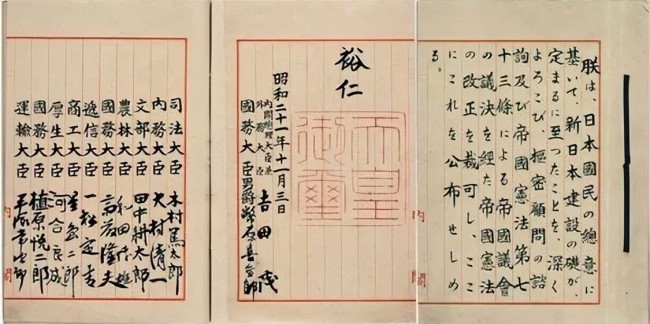 朕は、日本國民の總意に
基いて、新日本建設の礎が、
定まるに至つたことを、深く
よろこび、樞密顧問の諮
詢及び帝國憲法第七
十三條による帝國議會
の議決を経た帝國憲法
の改正を裁可し、ここ
にこれを公布せしめ
る。
内閣
裕仁
天皇
御璽
昭和二十一年十一月三日
内閣總理大臣兼
外務大臣 吉田茂
國務大臣 男爵幣原喜重郎
司法大臣 木村篤太郎
内務大臣 大村清一
文部大臣 田中耕太郎
農林大臣 和田博雄
國務大臣 斎藤隆夫
逓信大臣 一松定吉
商工大臣 星島二郎
厚生大臣 河合良成
國務大臣 植原悦二郎
運輸大臣 平塚常次郎
内閣